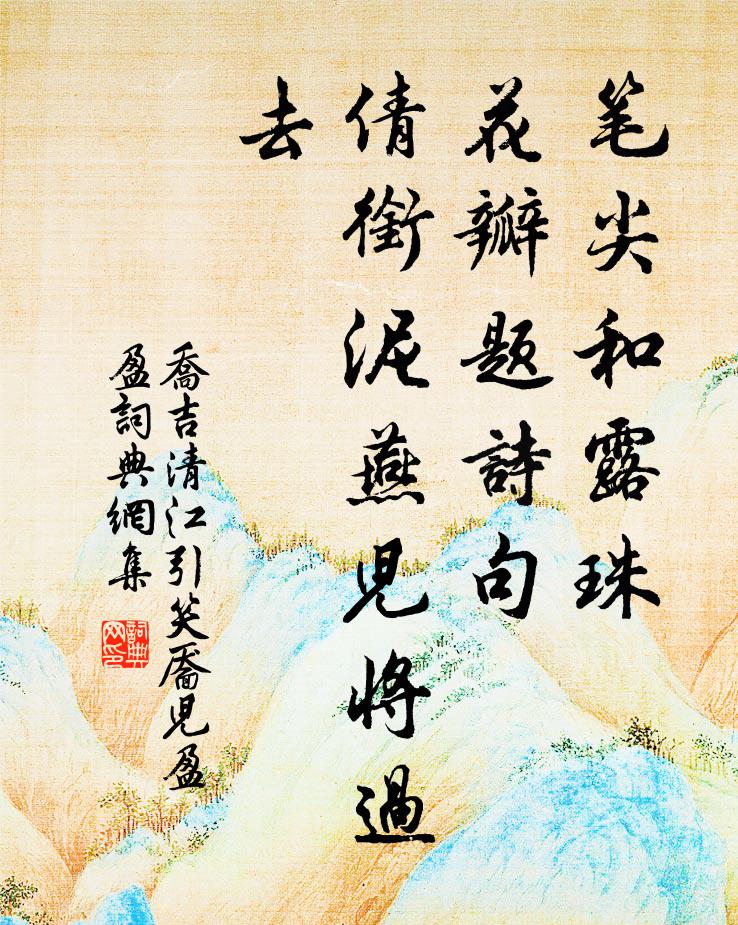 笔尖和露珠
花瓣题詩句
倩銜泥燕児將過
去
喬吉清江引笑靥児盈
盈詞典網集
詞典
网印